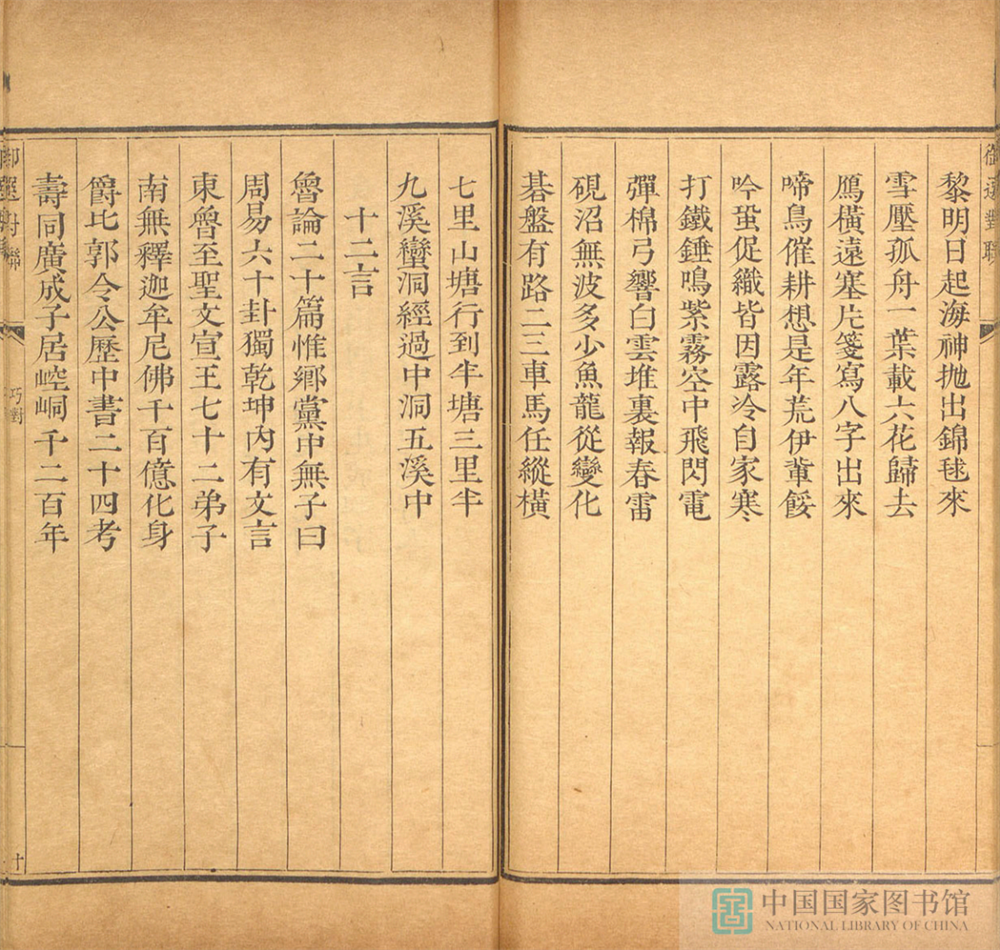 黎明日起海神抛出錦毬來
雪壓孤舟一葉載六花歸去
鴈橫遠塞片箋寫八字出來
啼鳥催耕想是年荒伊軰餒
吟蛩促織皆因露冷自家寒
打鐵錘鳴紫霧空中飛閃電
彈棉弓響白雲堆裏報春雷
硯沼無波多少魚龍從變化
碁盤有路二三車馬任縱橫
七里山塘行到半塘三里半
九溪蠻洞經過中洞五溪中
十二言
魯論二十篇惟鄉黨中無子曰
周易六十卦獨乾坤內有文言
東魯至聖文宣王七十二弟子
南無釋迦牟尼佛千百億化身
爵比郭令公歷中書二十四考
壽同廣成子居崆峒千二百年
巧對
十
中国国家图书馆
NATIONAL LIBRARY OF CHINA